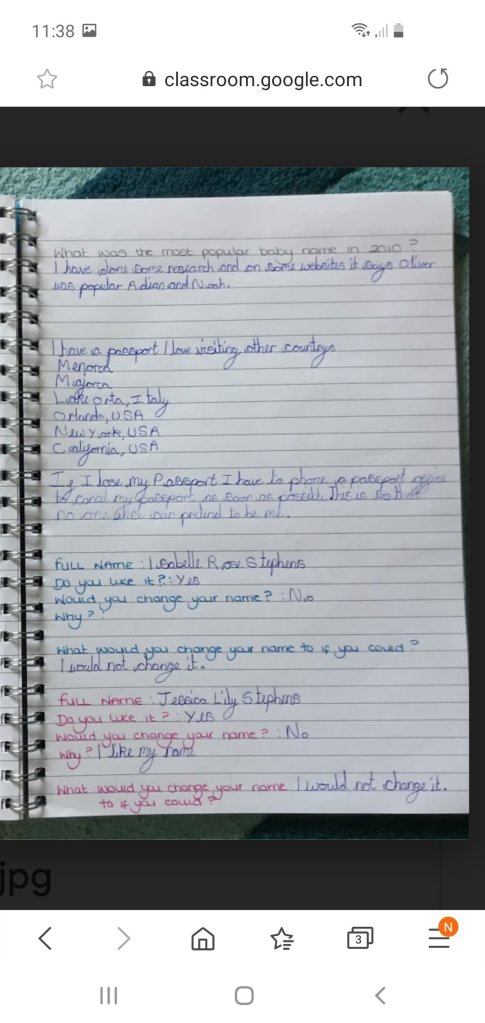 11:38
classroom.google.com
What was the most popular baby name in 2010?
I have done some research and on some websites it says Oliver
was popular Adian and Noah.
I have a passport I love visiting other countrys
Menorca
Majorca
Lake Orta, Italy
Orlando, USA
New York, USA
USA
If I lose my Passport I have to phone a passport
to my passport as soon as possible. This is so that
no one can pretend to be me.
FULL NAME: Isabelle Rose Stephens
Do you like it?: Yes
Would you change your name?: No
Why?:
What would you change your name to if you could?
I would not change it.
FULL NAME: Jessica Lily Stephens
Do you like it?: Yes
Would you change your name?: No
Why? I like my name
What would you change your name I would not change it.
to if you could?
jpg
3
N